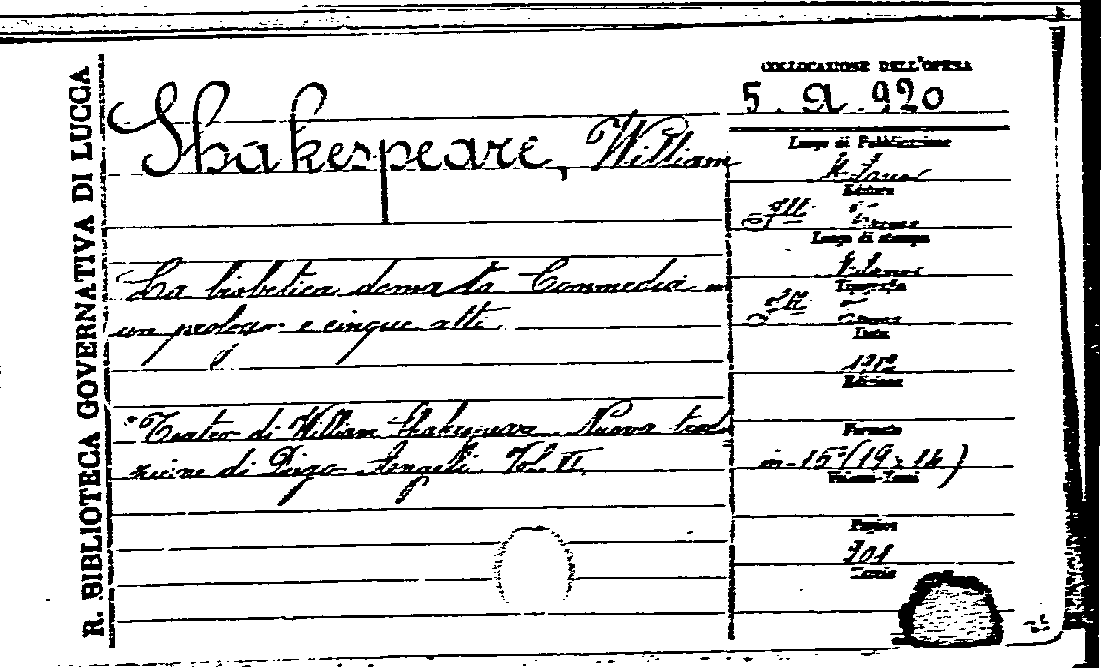 R. BIBLIOTECA GOVERNATIVA DI LUCCA
Shakespeare, William
La bisbetica domata Commedia in
un prologo e cinque atti
"Teatro di William Shakespeare. Nuova tradu
zione di Diego Angeli. Vol. VI.
COLLOCAZIONE DELL'OPERA
5. A. 920
Luogo di Pubblicazione
Milano
Editore
Luogo di stampa
Milano
Tipografia
Data
Edizione
Formato
in-16°(19x14)
Volume-Tomi
Pagine
201
Tavole